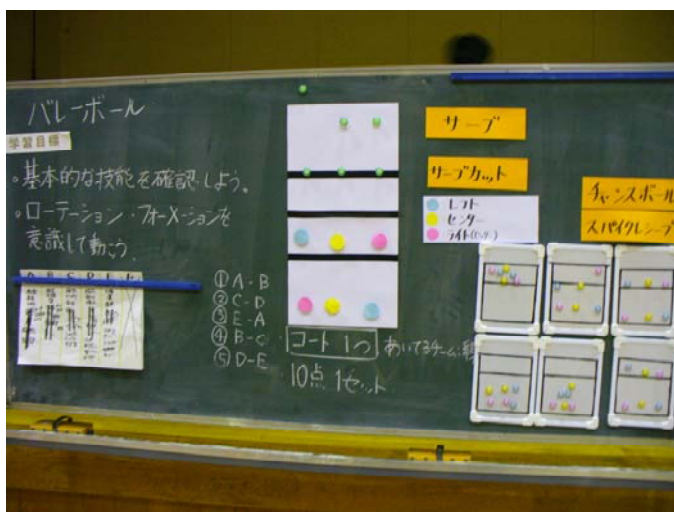 バレーボール
学習目標
。基本的な技能を確認しよう。
。ローテーション・フォーメーションを
意識して動こう。
A B C D E
①A-B
②C-D
③E-A
④B-C
⑤D-E
コート 1つ
あいてるチーム:
10点 1セット
サーブ
サーブカット
レフト
センター
ライト(セッター)
チャンスボール
スパイクレシーブ